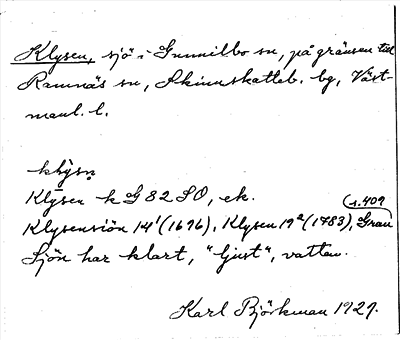 Klysen, sjö i Gunnilbo sn, på gränsen till
Ramnäs sn, Skinnskatteb. bg, Väst-
manl. l.
klȳsn̥
Klysen k G 82 SO, ek.
s. 409
Klysensiön 14¹ (1696), Klysen 19² (1783), Grau
Sjön har klart, "ljust", vatten.
Karl Björkman 1929.